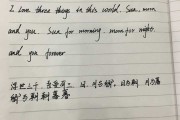 I love three things in this world. Sun, moon
and you. Sun for morning, moon for night,
and you forever
浮世三千，吾爱有三，日、月与卿，日为朝，月为暮
卿为朝朝暮暮